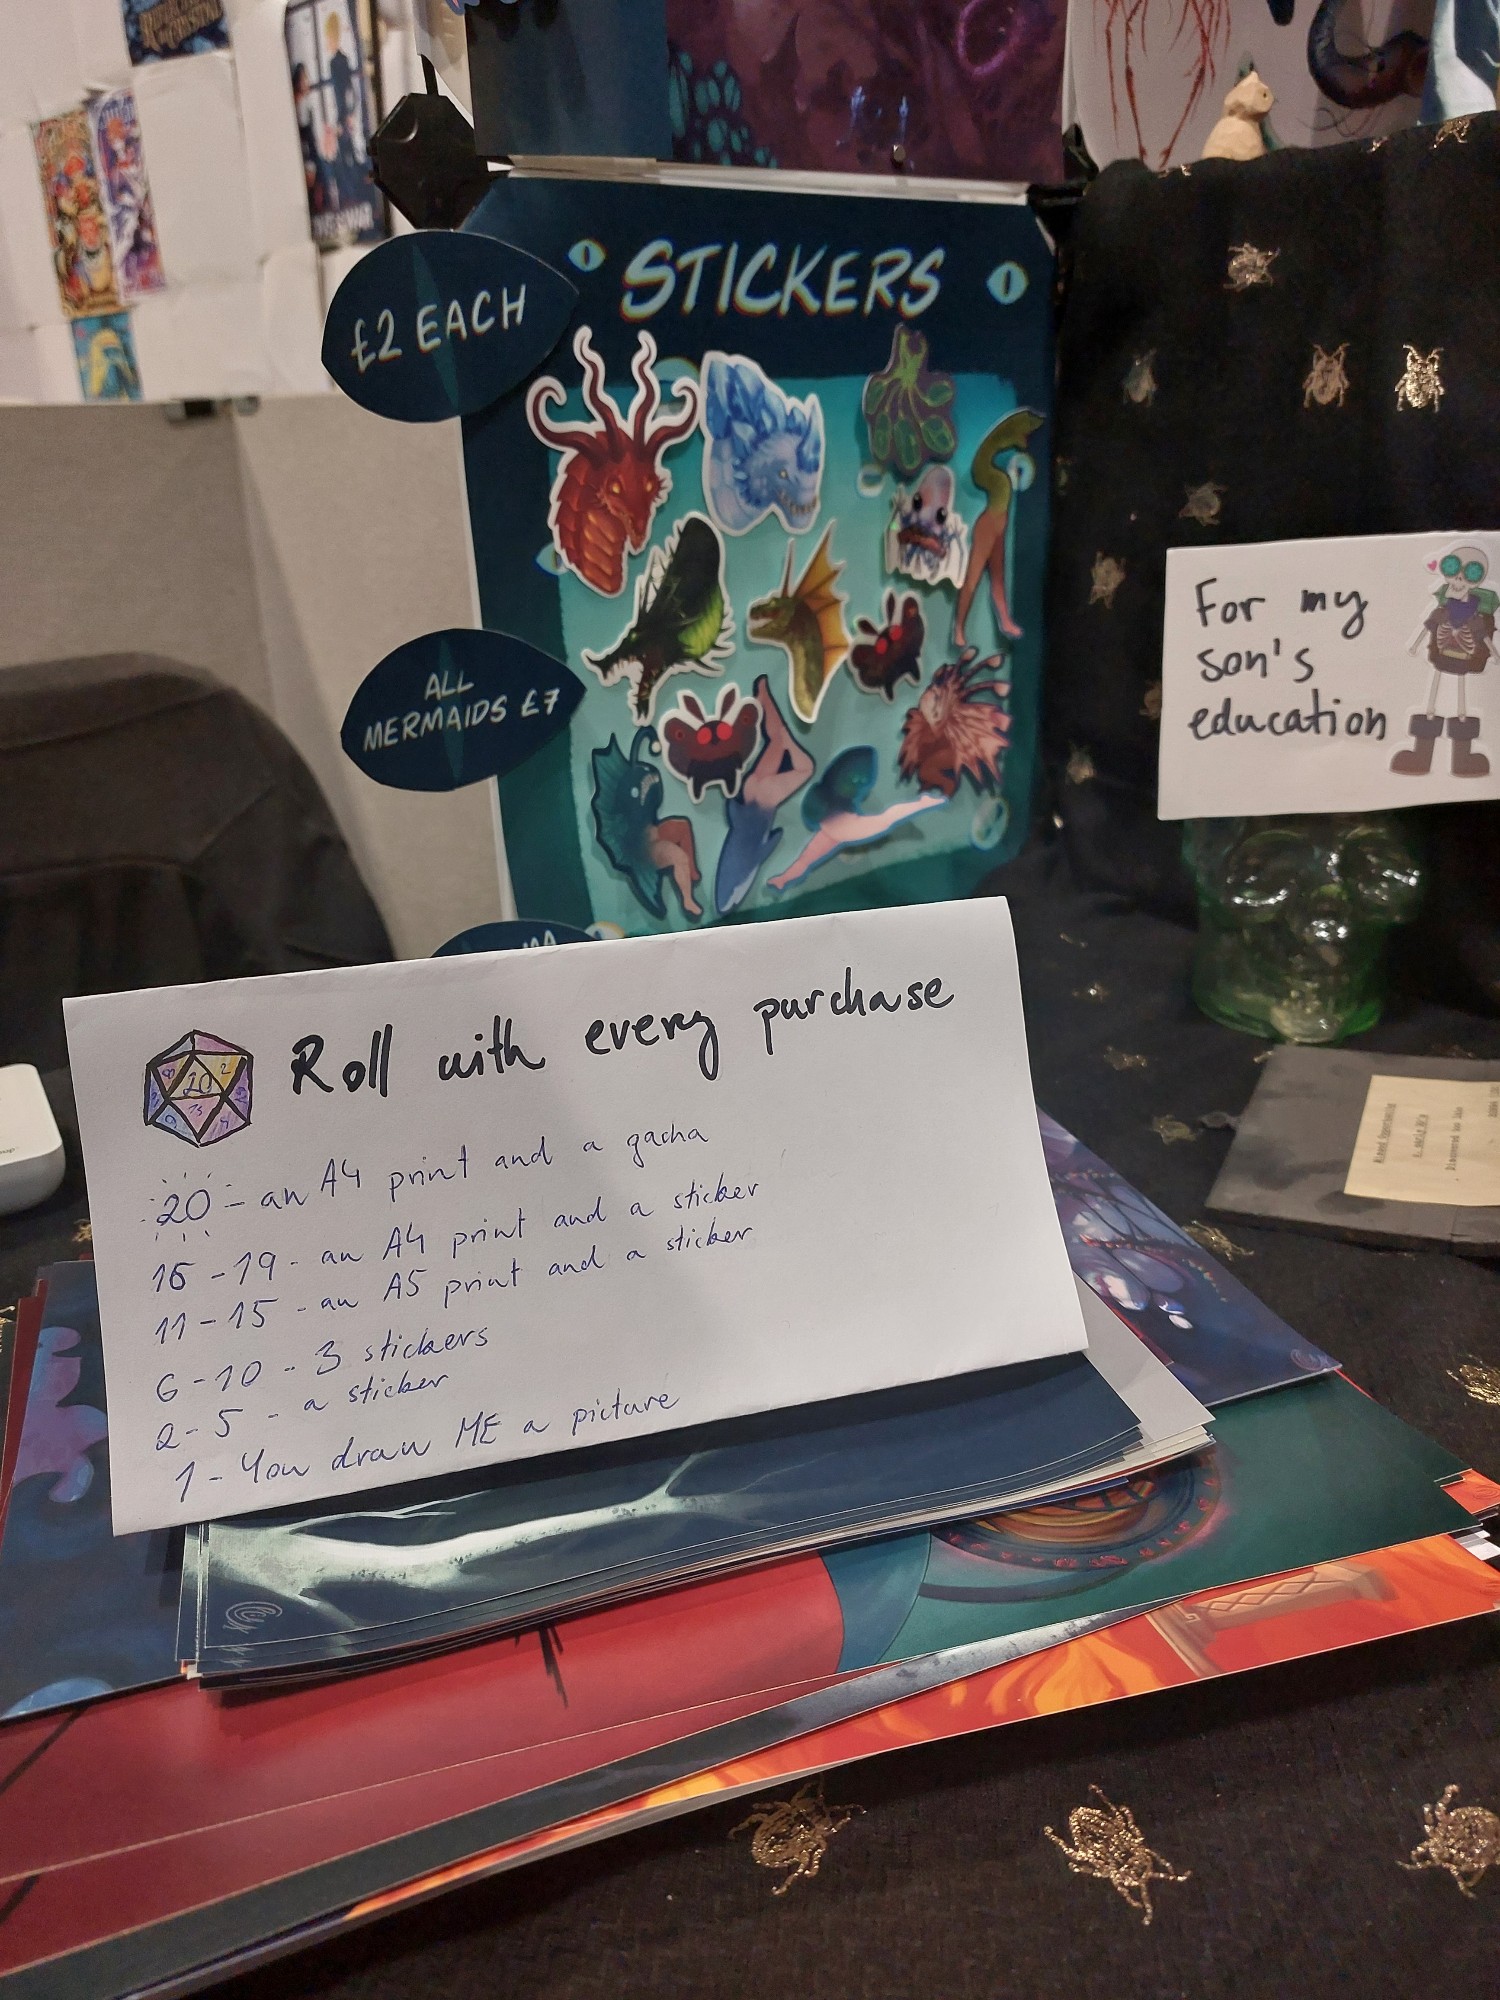 STICKERS
£2 EACH
ALL
MERMAIDS £7
For my
son's
education
Roll with every purchase
20
20 - an A4 print and a gacha
16 - 19 - an A4 print and a sticker
11 - 15 - an A5 print and a sticker
6 - 10 - 3 stickers
2 - 5 - a sticker
1 - You draw ME a picture